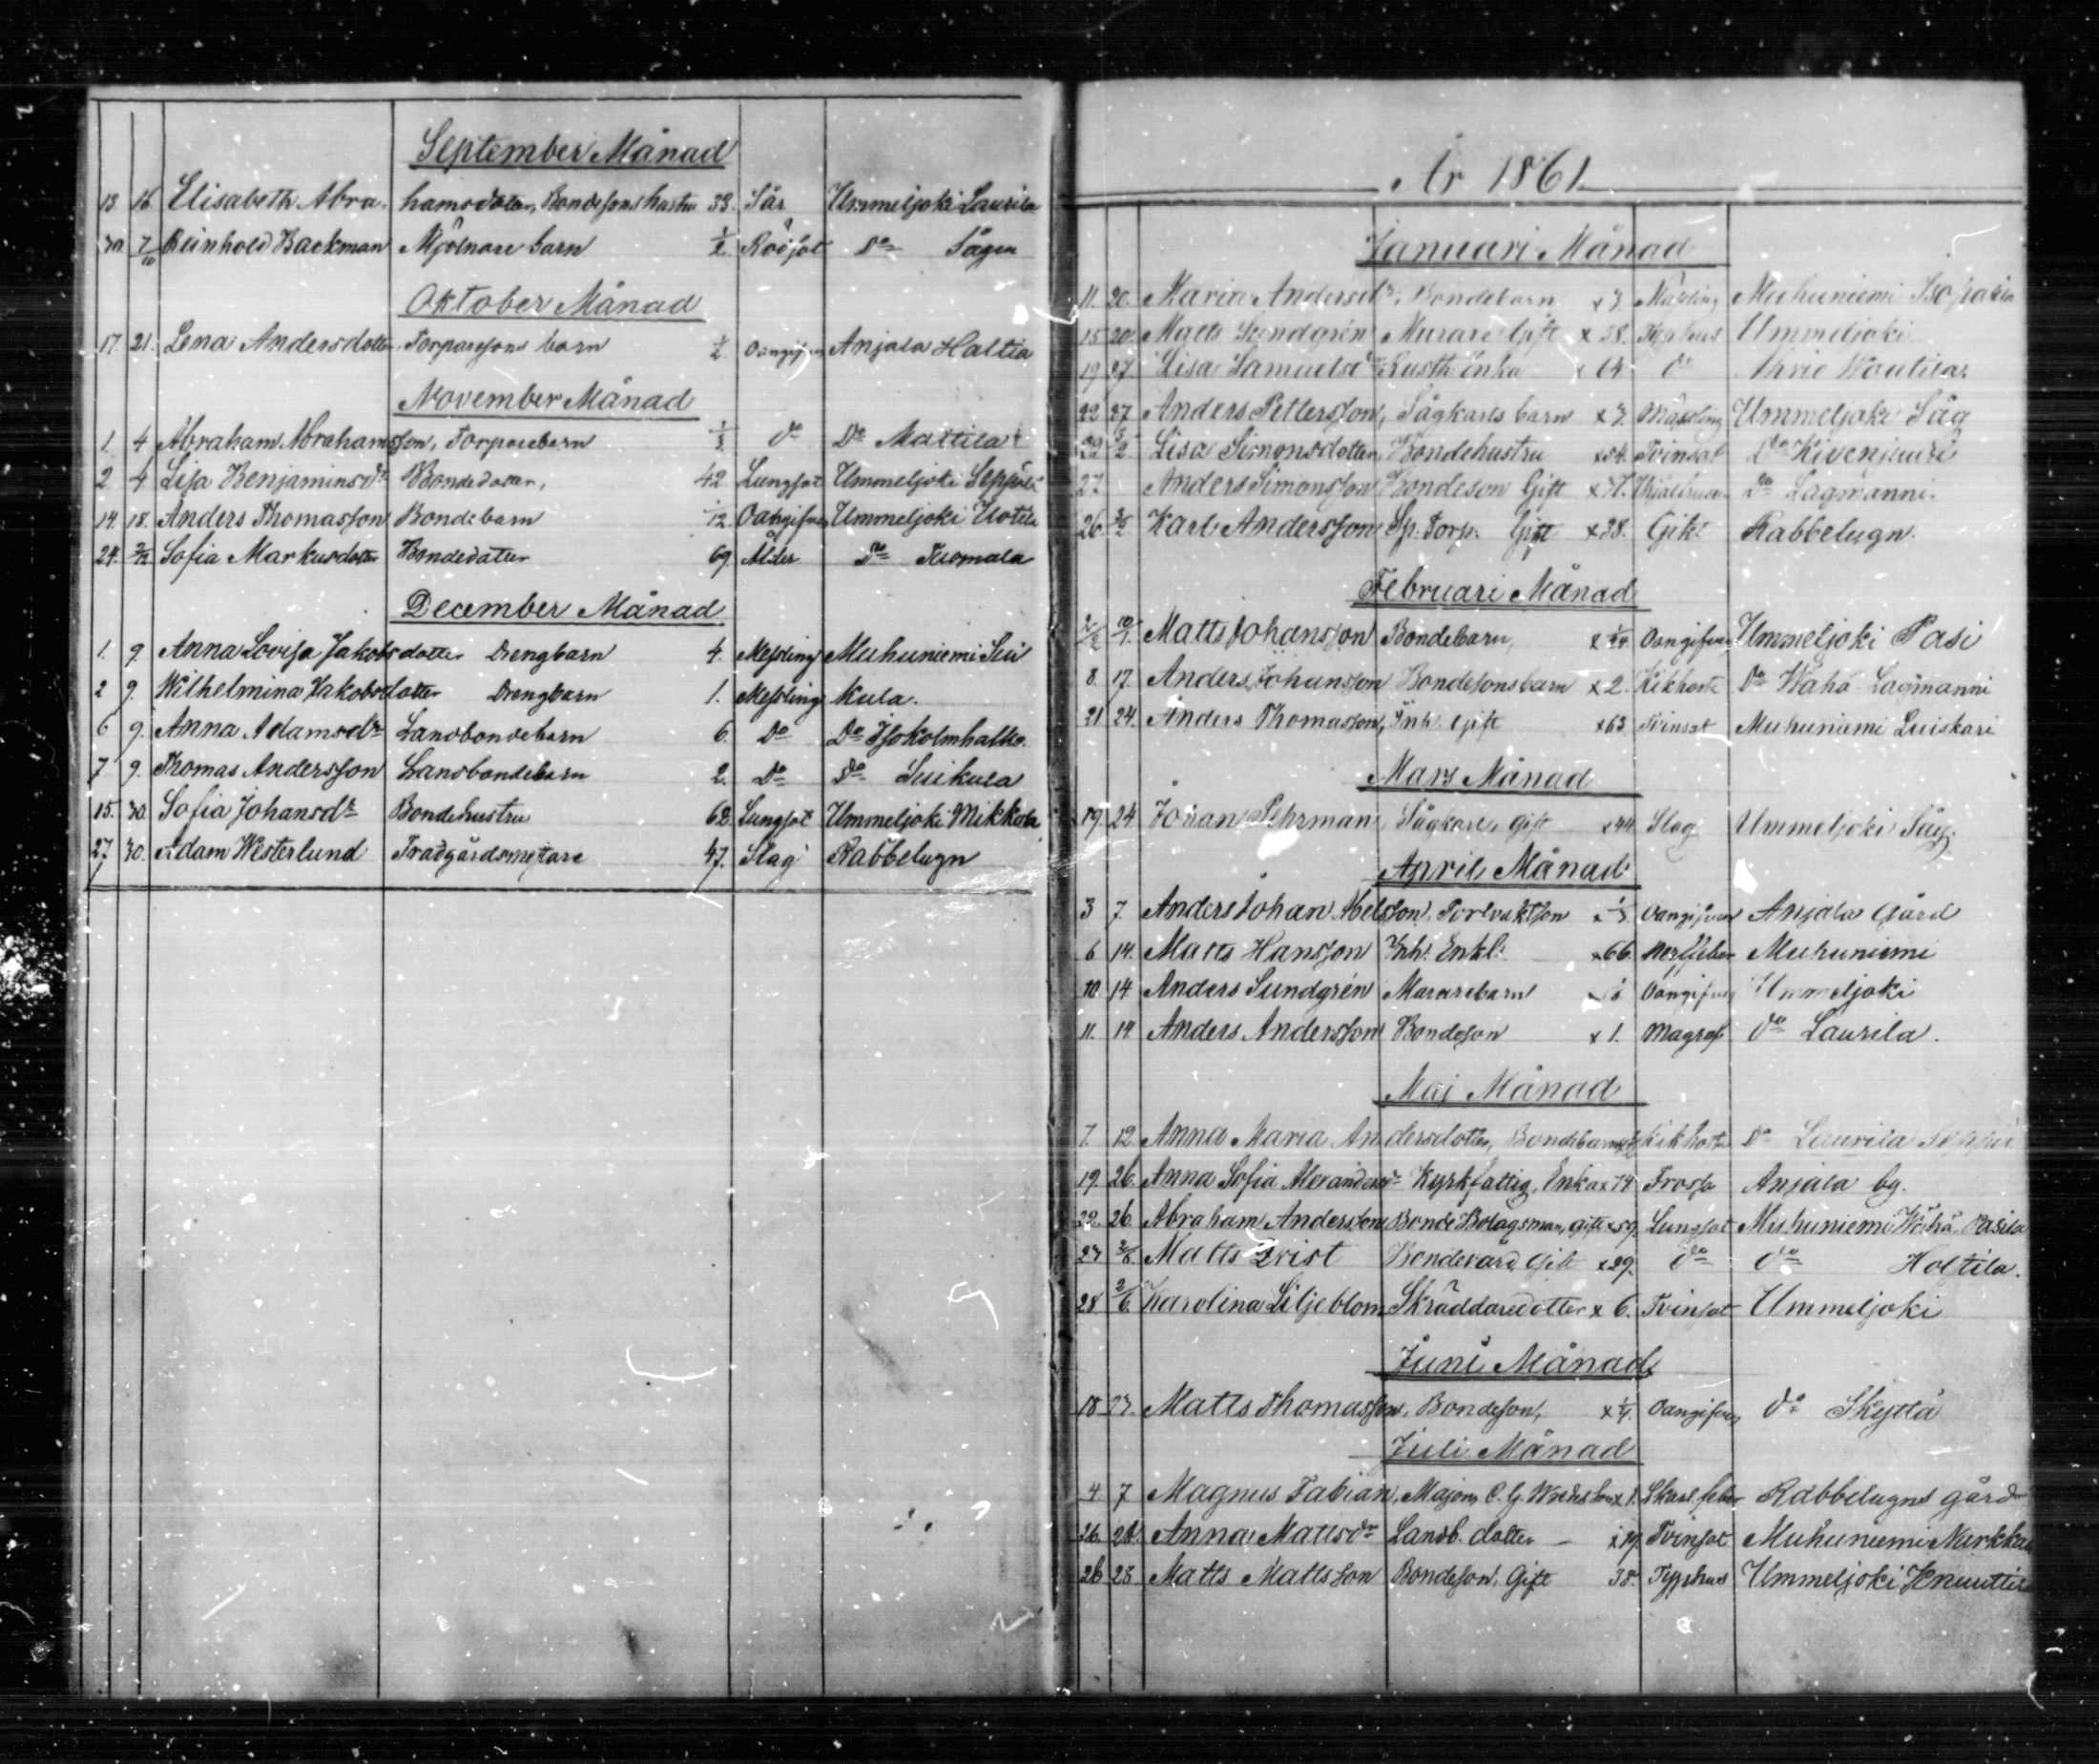 September Månad
13 16 Elisabeth Abrahamsdotter, Bondesons hustru 33. Sår Ummeljoki Laurila
30 7/10 Reinhold Backman Mjölnare barn 1/2 Rödsot Do Sågen
Oktober Månad
17. 21. Lena Andersdotter Torparesons barn 1/2 Oangifven Anjala Haltia
November Månad
1. 4 Abraham Abrahamsson, Torparebarn do Do Mattila
2. 4. Lisa Benjaminsdr Bondedotter, 42 Lungsot Ummeljoki Seppälä
14. 18. Anders Thomasson Bondebarn 1/12 Oangifven Ummeljoki Uotila
24. 2/12 Sofia Markusdotter Bondedotter 69. Ålder Do Tuomala
December Månad
1. 9. Anna Lovisa Jakobsdotter Drengbarn 4. Messling Muhuniemi Sui
2 9. Wilhelmina Jakobsdotter Drengbarn 1. Messling kula.
6 9. Anna Adamsdr Landbondebarn 6. Do Do
7 9. Thomas Andersson Landbondebarn 2. Do Do Suikula
15. 30. Sofia Johansdr Bondehustru 62. Lungsot Ummeljoki Mikkola
27 30. Adam Westerlund Trädgårdsmestare 47. Slag Rabbelugn
År 1861
Januari Månad
11. 20. Maria Andersdr, Bondebarn x 3. Mässling Muhuniemi
15 20 Matts Sundgrén Murare Gift x 38. Typhus Ummeljoki
19 27 Lisa Samuelsdr Rusth. Enka x 64 do
22 27 Anders Pettersson, Sågkarls barn x 3. Mässling Ummeljoki Såg
Lisa Simonsdotter, Bondehustru x 54. Tvinsot Do Kivenjuuri
27 Anders Simonsson Bondeson Gift Do Lagmanni.
26. 3/2 Karl Andersson Sp. Torp. Gift x 38. Gikt Rabbelugn.
Februari Månad
Matts Johansson Bondebarn, x 1/24 Oangifven Ummeljoki Pasi
8. 17. Anders Johansson Bondesonsbarn x 2. Kikhosta Do Wähä Lagmanni
21 24. Anders Thomasson, Inh. Gift x 63. Tvinsot Muhuniemi Luiskari
Mars Månad
19. 24 Johan Pehrman Sågkarl, gift x 44 Slag Ummeljoki Såg.
April Månad
3 7. Anders Johan Abelsson, Torlvaktson Oangifven Anjala Gård
6 14. Matts Hansson Inh. Enkl. x 66. Nerffeber Muhuniemi
10. 14 Anders Sundgrén Murarebarn Oangifven Ummeljoki
11. 14 Anders Andersson Bondeson x 1. Magref do Laurila.
Maj Månad
7. 12 Anna Maria Andersdotter, Bondebarn Kikhosta Do Laurila
19. 26. Anna Sofia Alexandersdr Kyrkfattig, Enka x 74 Frossa Anjala by.
22. 26. Abraham Andersson Bonde Bolagsman, gift x 59. Lungsot Muhuniemi Wähä Pasila
27 2/6 Matts Qvist Gift x 29. do do Holtila.
28 2/6. Karolina Liljeblom Skräddaredotter x 6. Tvinsot Ummeljoki
Juni Månad
18 23. Matts Thomasson, Bondeson, x 1/4. Oangifven do Skyttä
Juli Månad
4. 7 Magnus Fabian, Majoren C. G. Wredes son x 1. Skarl. feber Rabbelugns gård
26. 28. Anna Mattsdr Landb. dotter – x 19. Tvinsot Muhuniemi Nurkka
26 28 Matts Mattsson Bondeson, Gift 38. Typhus Ummeljoki Knuuttila